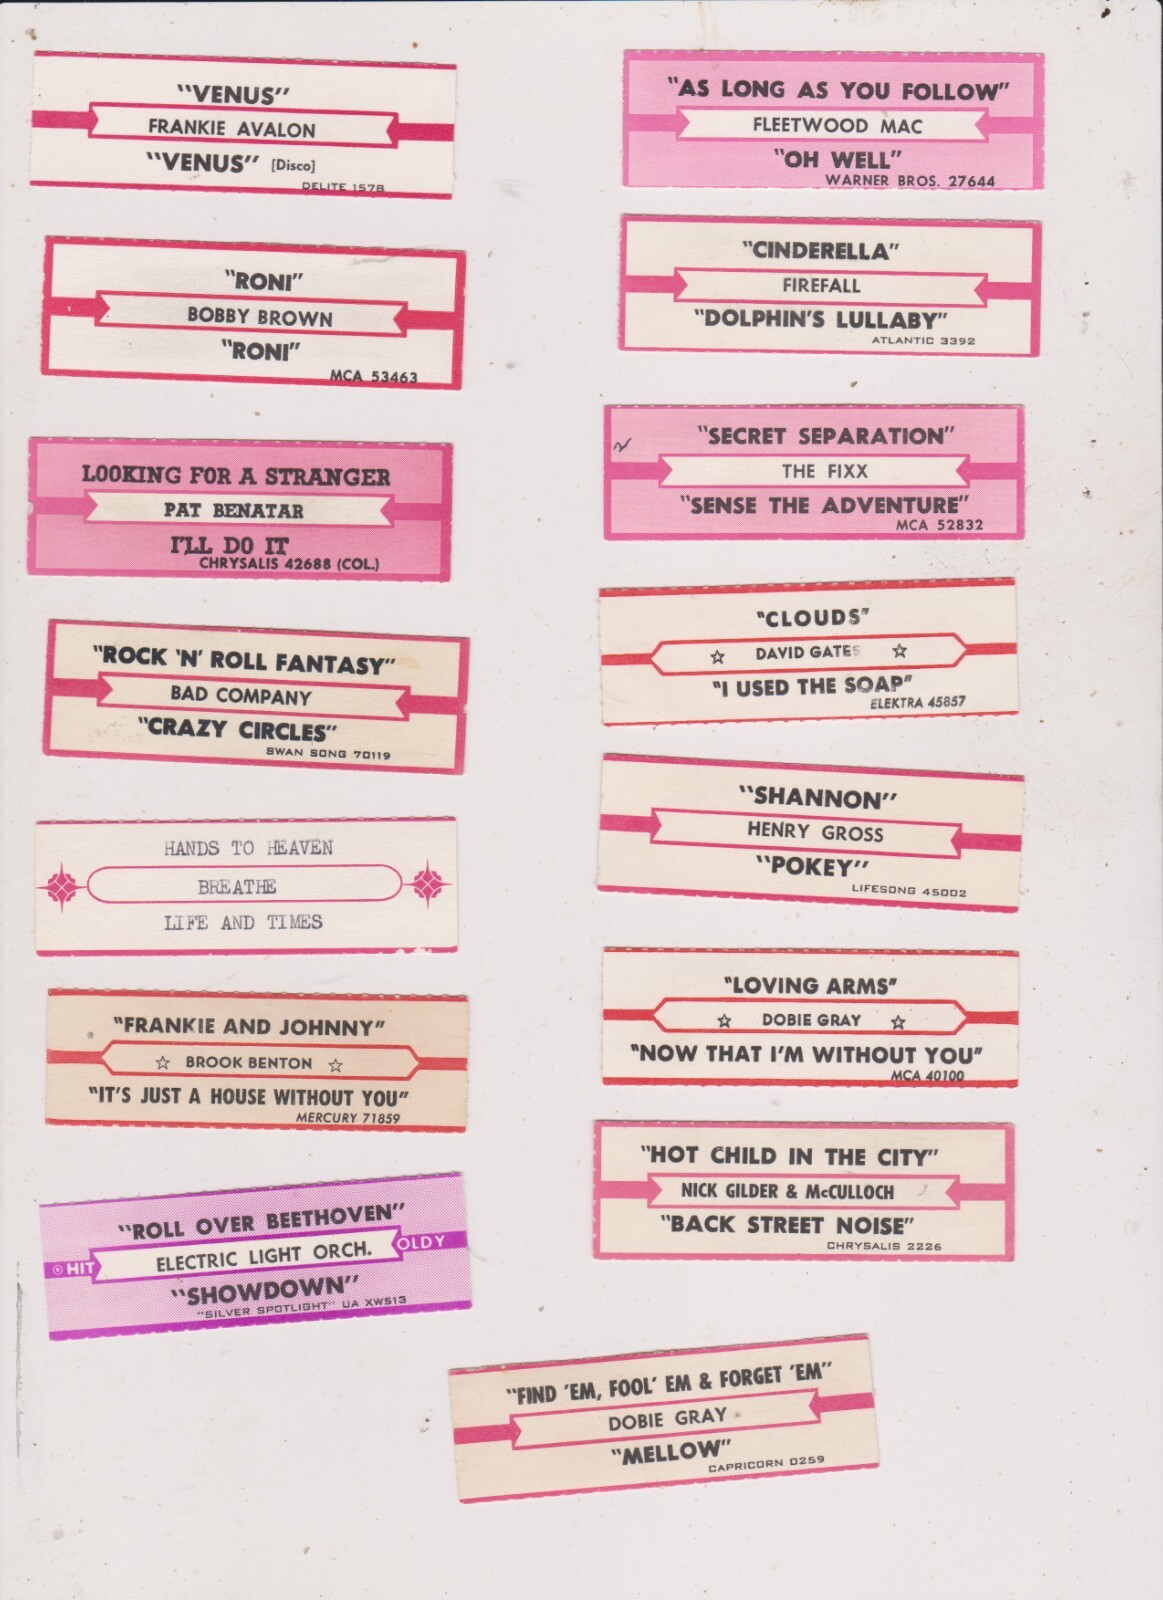 "VENUS"
FRANKIE AVALON
"VENUS" [Disco]
DELITE 1578
"RONI"
BOBBY BROWN
"RONI"
MCA 53463
LOOKING FOR A STRANGER
PAT BENATAR
I'LL DO IT
CHRYSALIS 42688 (COL.)
"ROCK 'N' ROLL FANTASY"
BAD COMPANY
"CRAZY CIRCLES"
SWAN SONG 70119
HANDS TO HEAVEN
BREATHE
LIFE AND TIMES
"FRANKIE AND JOHNNY"
☆ BROOK BENTON ☆
"IT'S JUST A HOUSE WITHOUT YOU"
MERCURY 71859
"ROLL OVER BEETHOVEN"
® HIT ELECTRIC LIGHT ORCH. OLDY
"SHOWDOWN"
"SILVER SPOTLIGHT" UA XW513
"AS LONG AS YOU FOLLOW"
FLEETWOOD MAC
"OH WELL"
WARNER BROS. 27644
"CINDERELLA"
FIREFALL
"DOLPHIN'S LULLABY"
ATLANTIC 3392
"SECRET SEPARATION"
THE FIXX
"SENSE THE ADVENTURE"
MCA 52832
"CLOUDS"
☆ DAVID GATES ☆
"I USED THE SOAP"
ELEKTRA 45857
"SHANNON"
HENRY GROSS
"POKEY"
LIFESONG 45002
"LOVING ARMS"
☆ DOBIE GRAY ☆
"NOW THAT I'M WITHOUT YOU"
MCA 40100
"HOT CHILD IN THE CITY"
NICK GILDER & McCULLOCH
"BACK STREET NOISE"
CHRYSALIS 2226
"FIND 'EM, FOOL' EM & FORGET 'EM"
DOBIE GRAY
"MELLOW"
CAPRICORN 0259